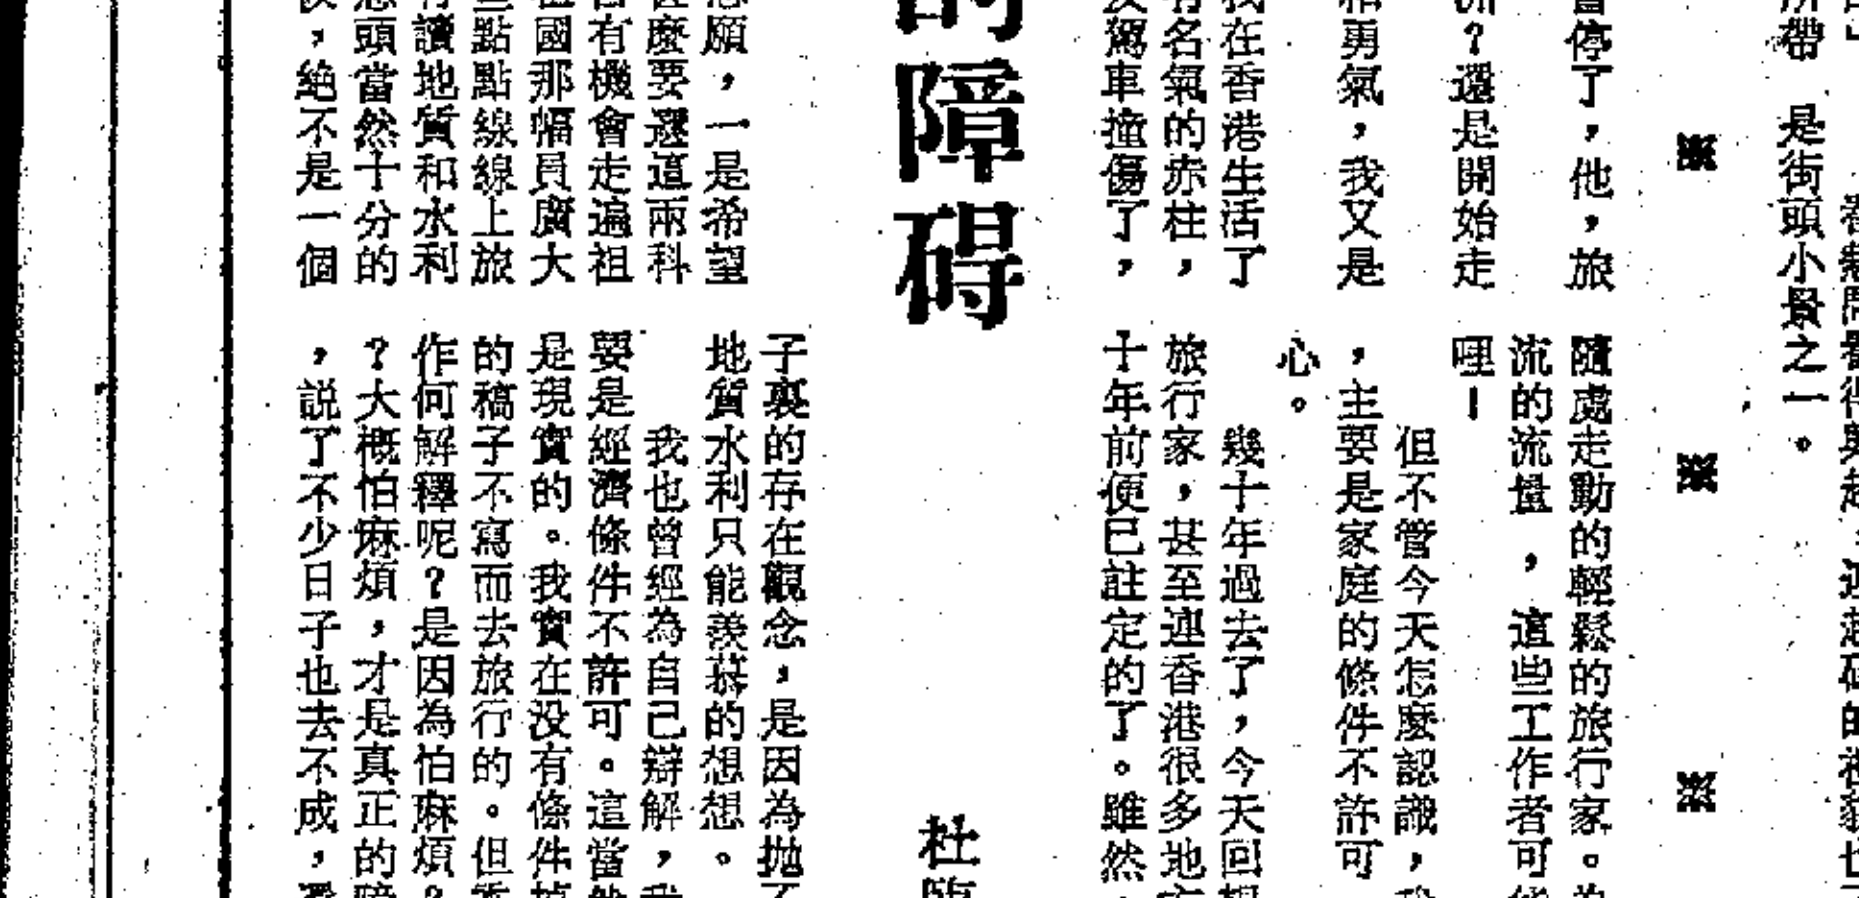 帶 是街頭小景之一。
停了，他，旅
？還是開始走
勇氣，我又是
我在香港生活了
有名氣的赤柱，
駕車撞傷了，
隨處走動的輕鬆的旅行家。
流的流量，這些工作者可
哩！
但不管今天怎麼認識，
，主要是家庭的條件不許可
心。
幾十年過去了，今天回想
旅行家，甚至連香港很多地
十年前便已註定的了。雖然，
的障碍
杜
願，一是希望
麼要選這兩科
有機會走遍祖
國那幅員廣大
點點線線上旅
讀地質和水利
頭當然十分的
，絕不是一個
子裏的存在觀念，是因為拋
地質水利只能羨慕的想想。
我也曾經為自己辯解，我
要是經濟條件不許可。這當
是現實的。我實在没有條件
的稿子不寫而去旅行的。但
作何解釋呢？是因為怕麻煩？
？大概怕麻煩，才是真正的
，説了不少日子也去不成，